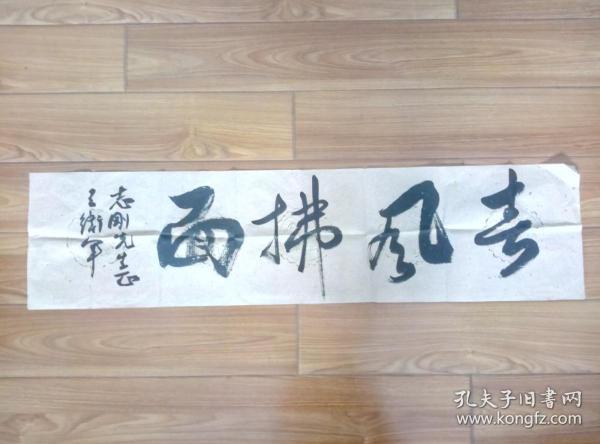 春风拂面
志刚先生正
王卫军
孔夫子旧书网
www.kongfz.com